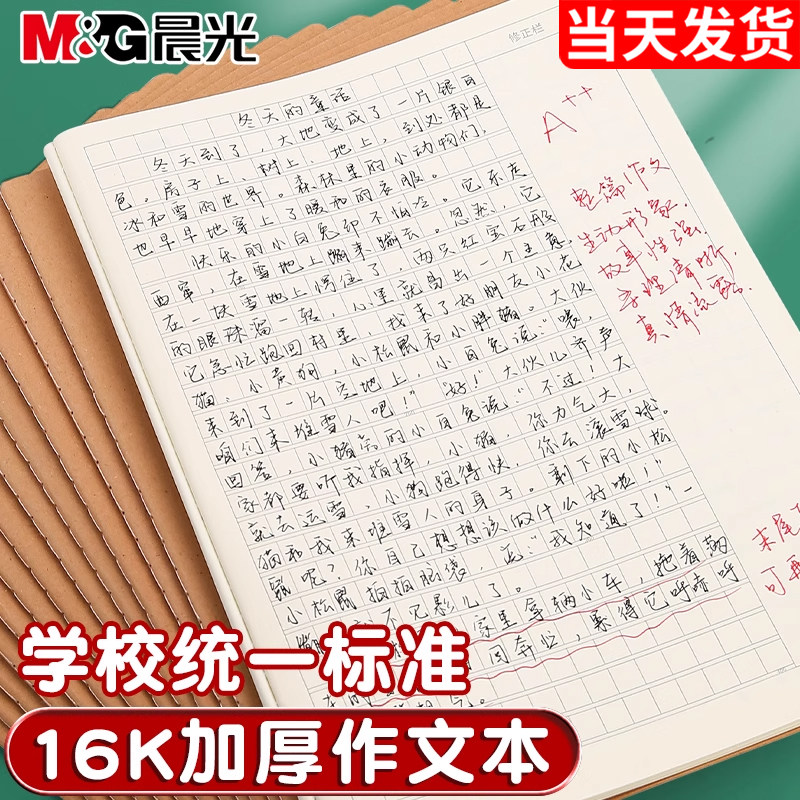 M&G晨光
当天发货
修正栏
冬天的童话
冬天到了，大地变成了一片银白
色。房子上、树上、地上，到处都是
冰和雪的世界。森林里的小动物们，
也早早地穿上了暖和的衣服。
快乐的小白兔却不怕冷。它东走
西窜，在雪地上蹦来蹦去。忽然，它
在一块雪地上愣住了，两只红宝石般
的眼珠溜一转，心里就冒出一个主意，
它急忙跑回村里，找来了好朋友小花
猫、小黄狗，小松鼠和小胖猪。大伙
来到了一片空地上，小白兔说：“喂，
咱们来堆雪人吧！”“好！”大伙儿齐声
回答，的小白兔说：“不过！大
家都要听我指挥，小猫，你力气大，
就去运雪，小狗跑得快，你去滚雪球。
猫和我来堆雪人的身子。剩下的小松
鼠呢？你自己想想该做什么好啦！”
小松鼠拍拍脑袋，“我知道了！”一
不见影儿了。
家里拿辆小车，拖着两
回奔忙，累得它呼哧呼
A++
整篇作文
生动形象，
故事性强，
条理清晰，
真情流露。
末尾
可再
学校统一标准
16K加厚作文本